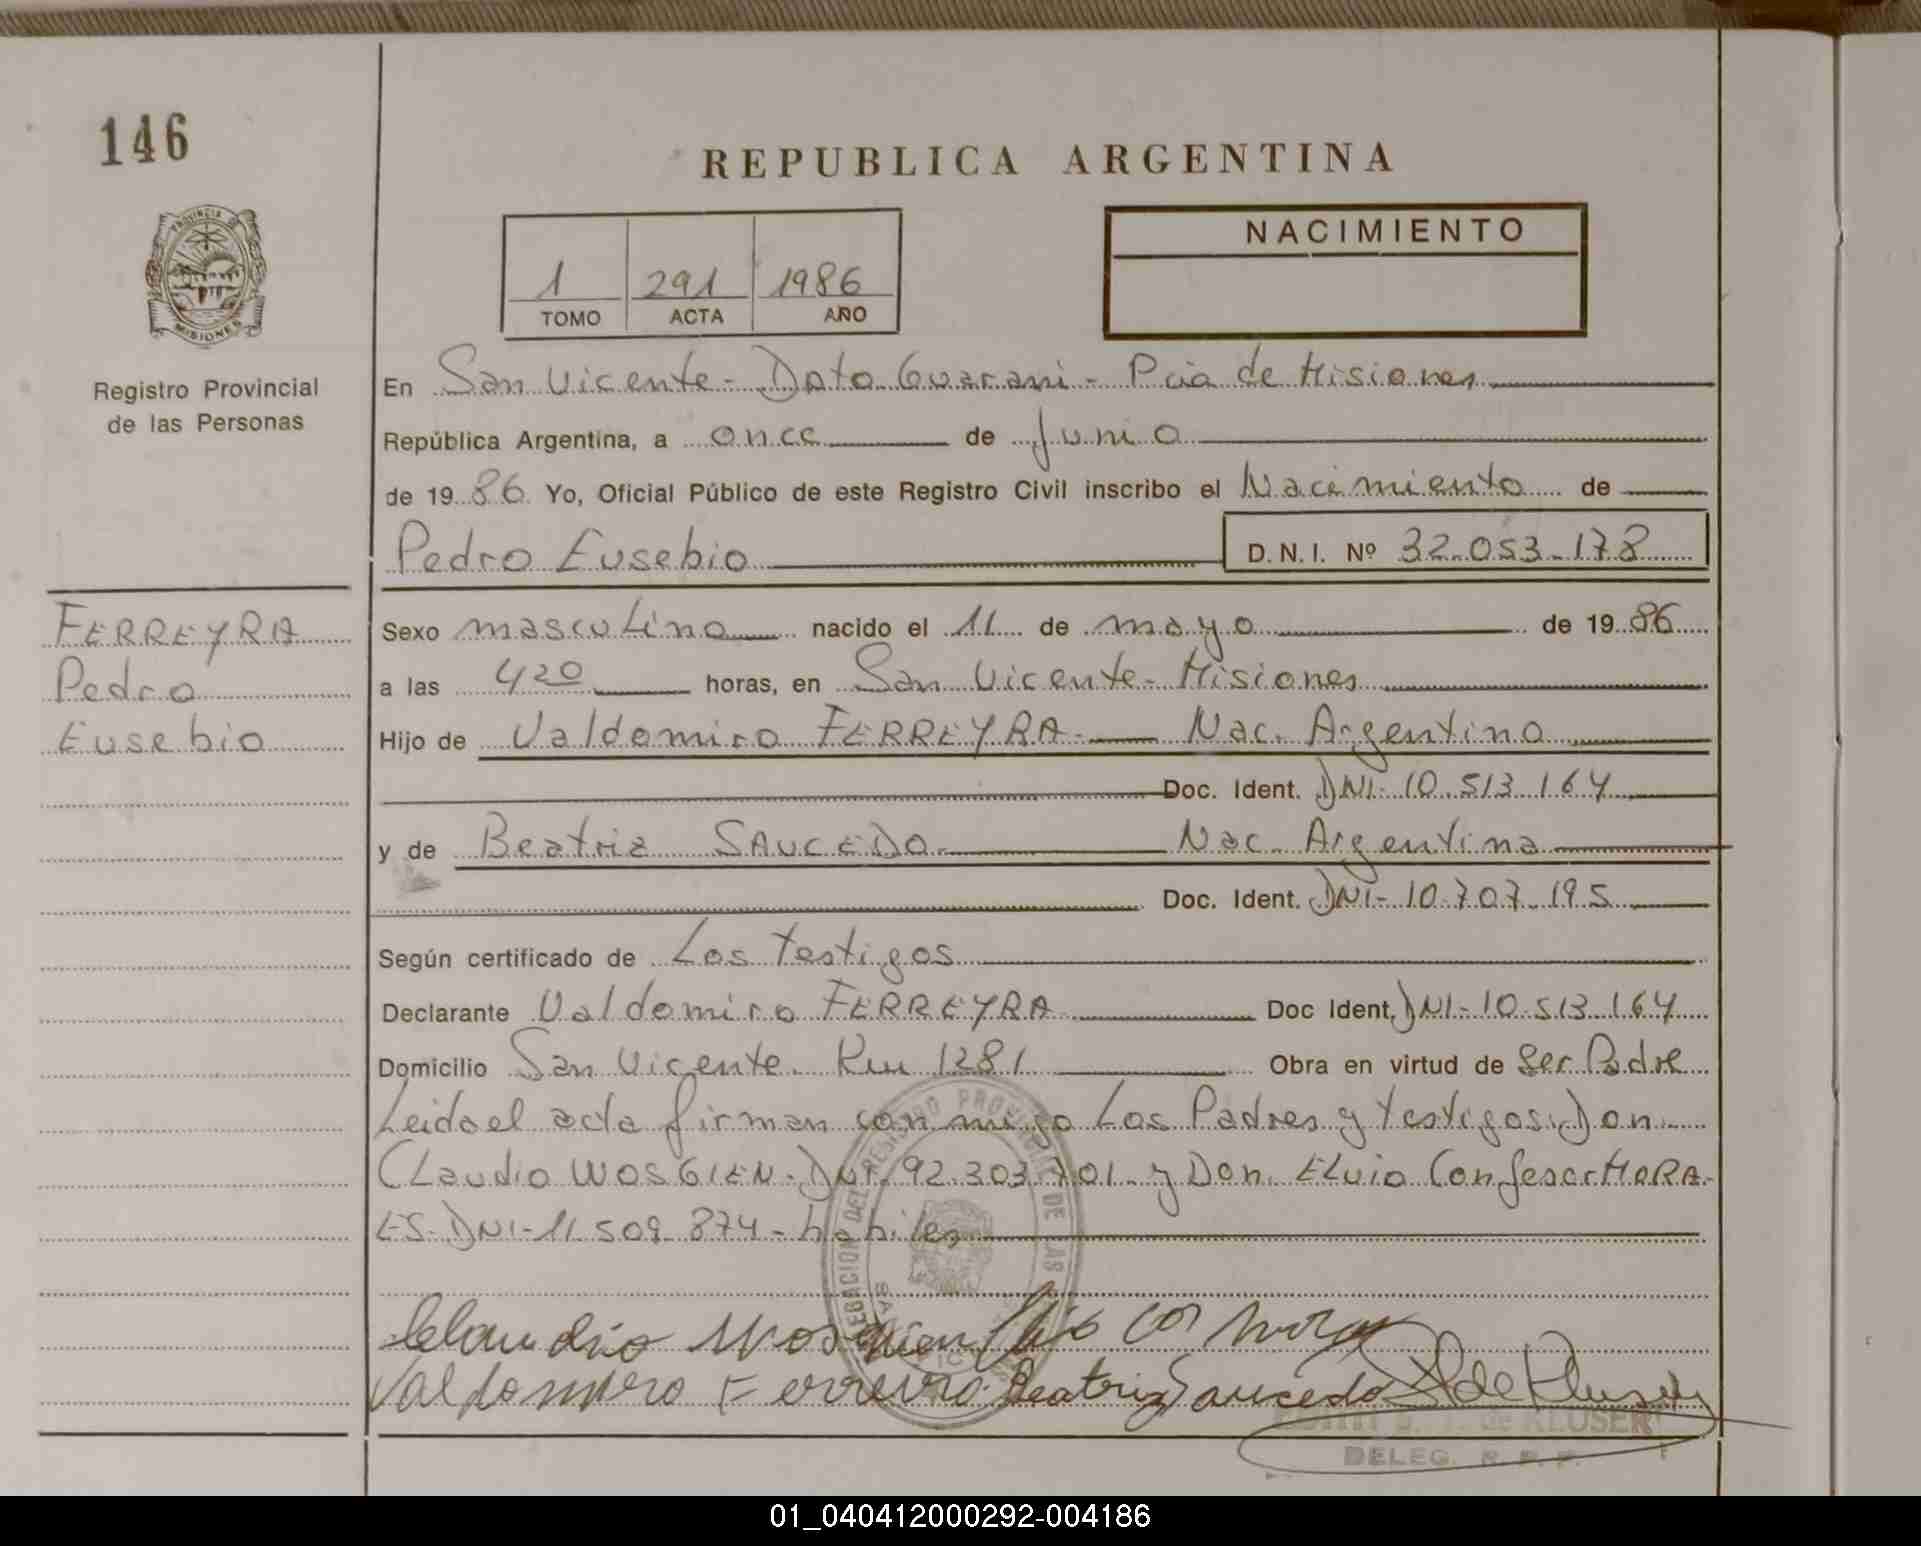 146
REPUBLICA ARGENTINA
PROVINCIA DE
MISIONES
Registro Provincial
de las Personas
1 291 1986
TOMO ACTA AÑO
NACIMIENTO
En San Vicente - Dpto Guarani - Pcia de Misiones
República Argentina, a once de Junio
de 1986 Yo, Oficial Público de este Registro Civil inscribo el Nacimiento de
Pedro Eusebio D.N.I. Nº 32.053.178
FERREYRA
Pedro
Eusebio
Sexo masculino nacido el 11 de mayo de 1986
a las 4 20 horas, en San Vicente - Misiones
Hijo de Valdomiro FERREYRA - Nac. Argentino
Doc. Ident. DNI- 10.513.164
y de Beatriz SAUCEDO Nac. Argentina
Doc. Ident. DNI- 10.707.195
Según certificado de Los testigos
Declarante Valdomiro FERREYRA Doc Ident. DNI- 10.513.164
Domicilio San Vicente. Km 1281 Obra en virtud de Ser Padre
Leida el acta firman con migo Los Padres y testigos: Don
Claudio WOSGIEN. DNI. 92.303.701. y Don. ELvio Confesor MORA-
ES. DNI- 11.509.874 - habiles
REGISTRO PROVINCIAL DE LAS
Claudio Wosgien
Valdomiro Ferreira Beatriz Saucedo
de KLUSER
DELEG. R. P. P.
01_040412000292-004186